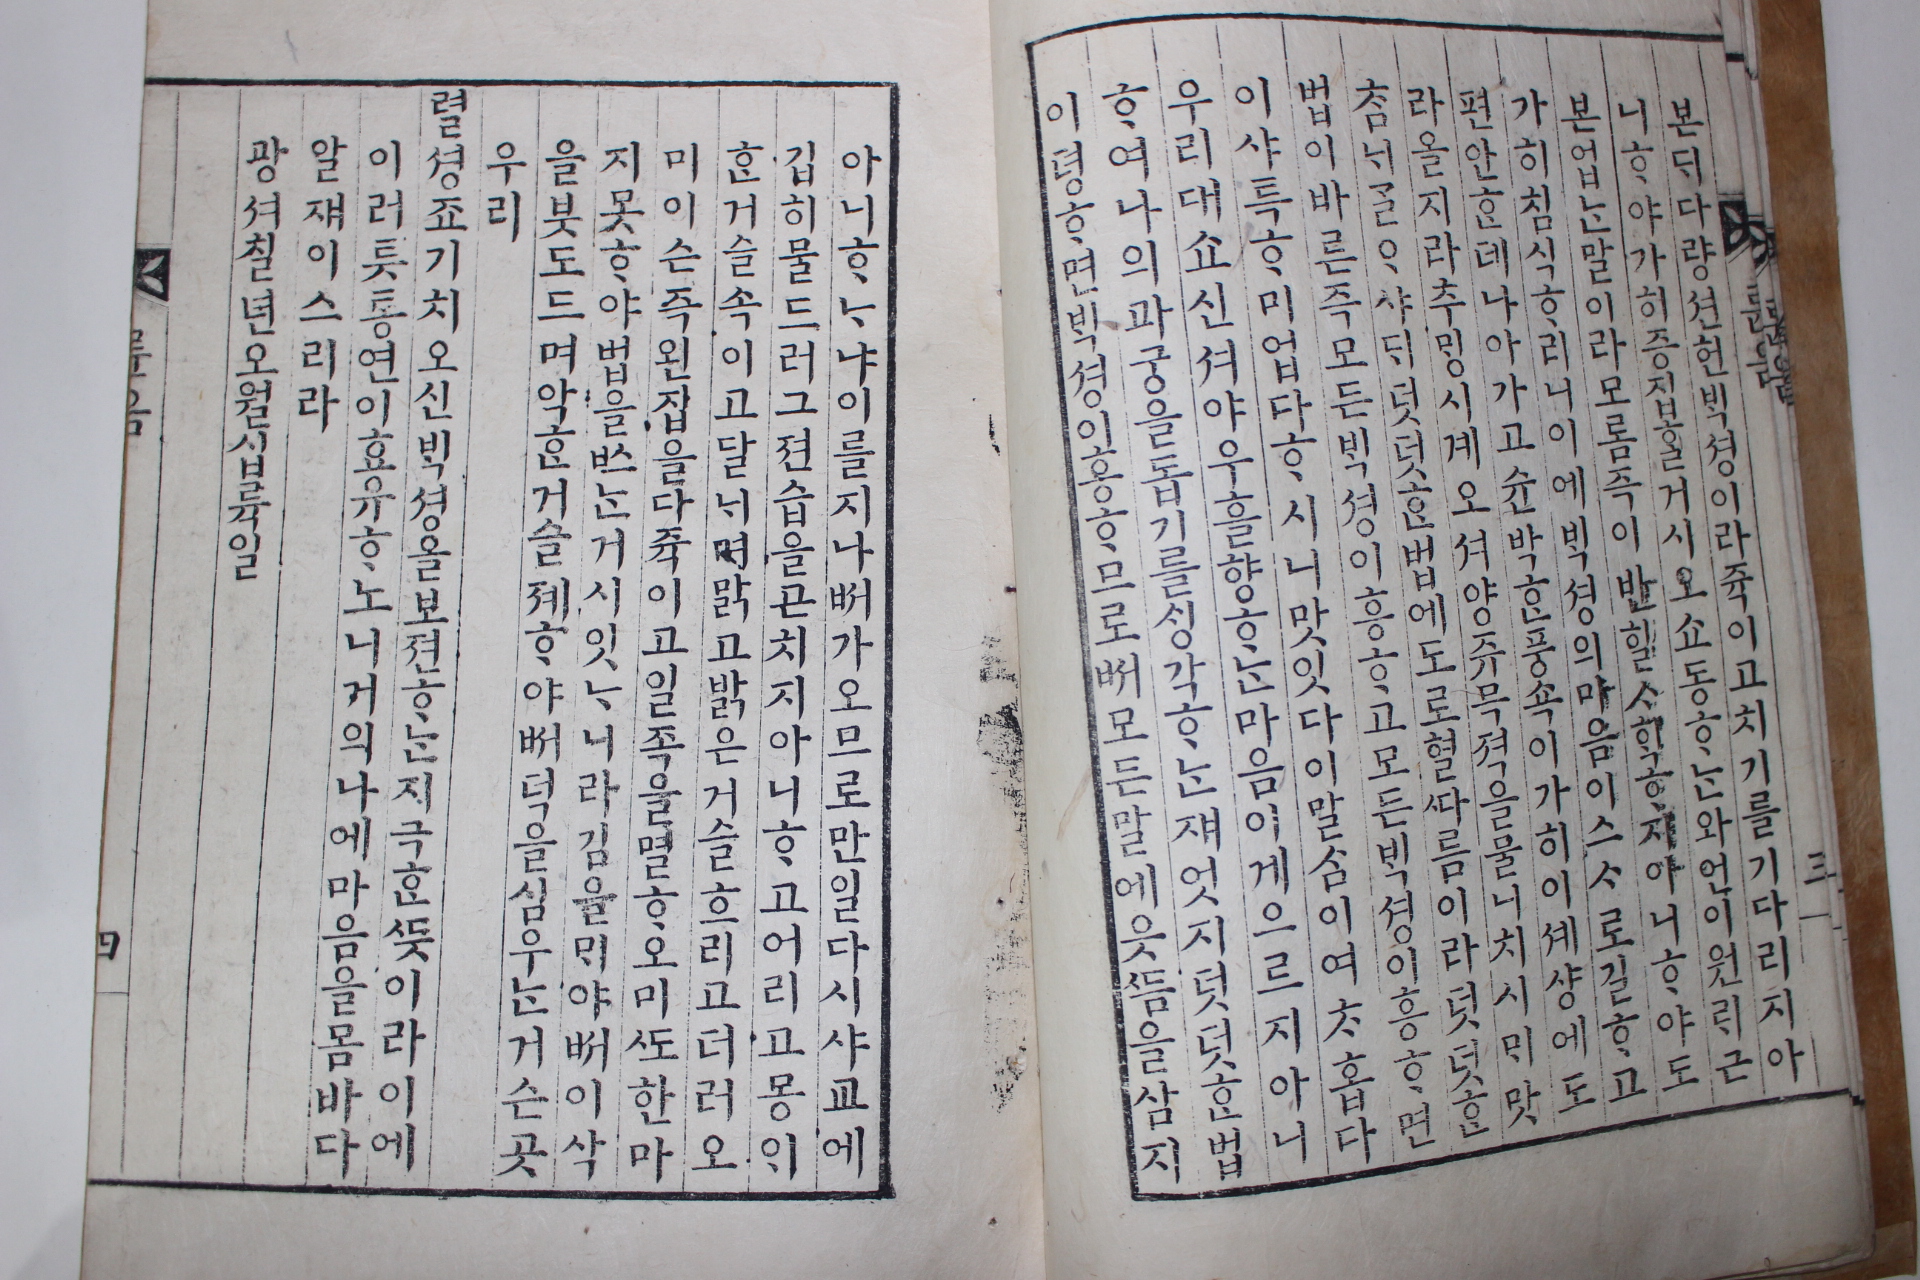 륜음
三
본ᄃᆡ다량션헌ᄇᆡᆨ셩이라죽이고치기를기다리지아
니ᄒᆞ야가히증집ᄒᆞᆯ거시오쇼동ᄒᆞᄂᆞᆫ와언이원ᄅᆡ근
본업ᄂᆞᆫ말이라모롬즉이반힐ᄉᆞ학ᄒᆞ지아니ᄒᆞ야도
가히침식ᄒᆞ리니이에ᄇᆡᆨ셩의마음이스ᄉᆞ로길ᄒᆞ고
편안ᄒᆞᆫ데나아가고슌박ᄒᆞᆫ풍쇽이가히이셰샹에도
라올지라추밍시계오셔양쥬묵젹을물니치시ᄆᆡ맛
ᄎᆞᆷᄂᆡᄀᆞᆯᄋᆞ샤ᄃᆡ덧덧ᄒᆞᆫ법에도로혈ᄯᅡ름이라덧덧ᄒᆞᆫ
법이바른즉모든ᄇᆡᆨ셩이흥ᄒᆞ고모든ᄇᆡᆨ셩이흥ᄒᆞ면
이샤특ᄒᆞ미업다ᄒᆞ시니맛잇다이말ᄉᆞᆷ이여ᄎᆞ홉다
우리대쇼신셔야우흘향ᄒᆞᄂᆞᆫ마음이게으르지아니
ᄒᆞ여나의과궁을돕기를ᄉᆡᆼ각ᄒᆞᄂᆞᆫ쟤엇지덧덧ᄒᆞᆫ법
이뎡ᄒᆞ면ᄇᆡᆨ셩인흥ᄒᆞ므로ᄡᅥ모든말에읏듬을삼지
아니ᄒᆞᄂᆞ냐이를지나ᄡᅥ가오므로만일다시샤교에
깁히물드러그젼습을곤치지아니ᄒᆞ고어리고몽ᄋᆡ
ᄒᆞᆫ거슬속이고달ᄂᆡ면맑고밝은거슬흐리고더러오
미이슨즉왼집을다죽이고일족을멸ᄒᆞ오미ᄯᅩ한마
지못ᄒᆞ야법을ᄡᅳᄂᆞᆫ거시잇ᄂᆞ니라김을ᄆᆡ야ᄡᅥ이삭
을붓도드며악ᄒᆞᆫ거슬졔ᄒᆞ야ᄡᅥ덕을심우ᄂᆞᆫ거슨곳
우리
렬셩죠기치오신ᄇᆡᆨ셩을보젼ᄒᆞᄂᆞᆫ지극ᄒᆞᆫᄯᅳᆺ이라이에
이러틋통연이효유ᄒᆞ노니거의나에마음을몸바다
알쟤이스리라
광셔칠년오월십륙일
륜음
四